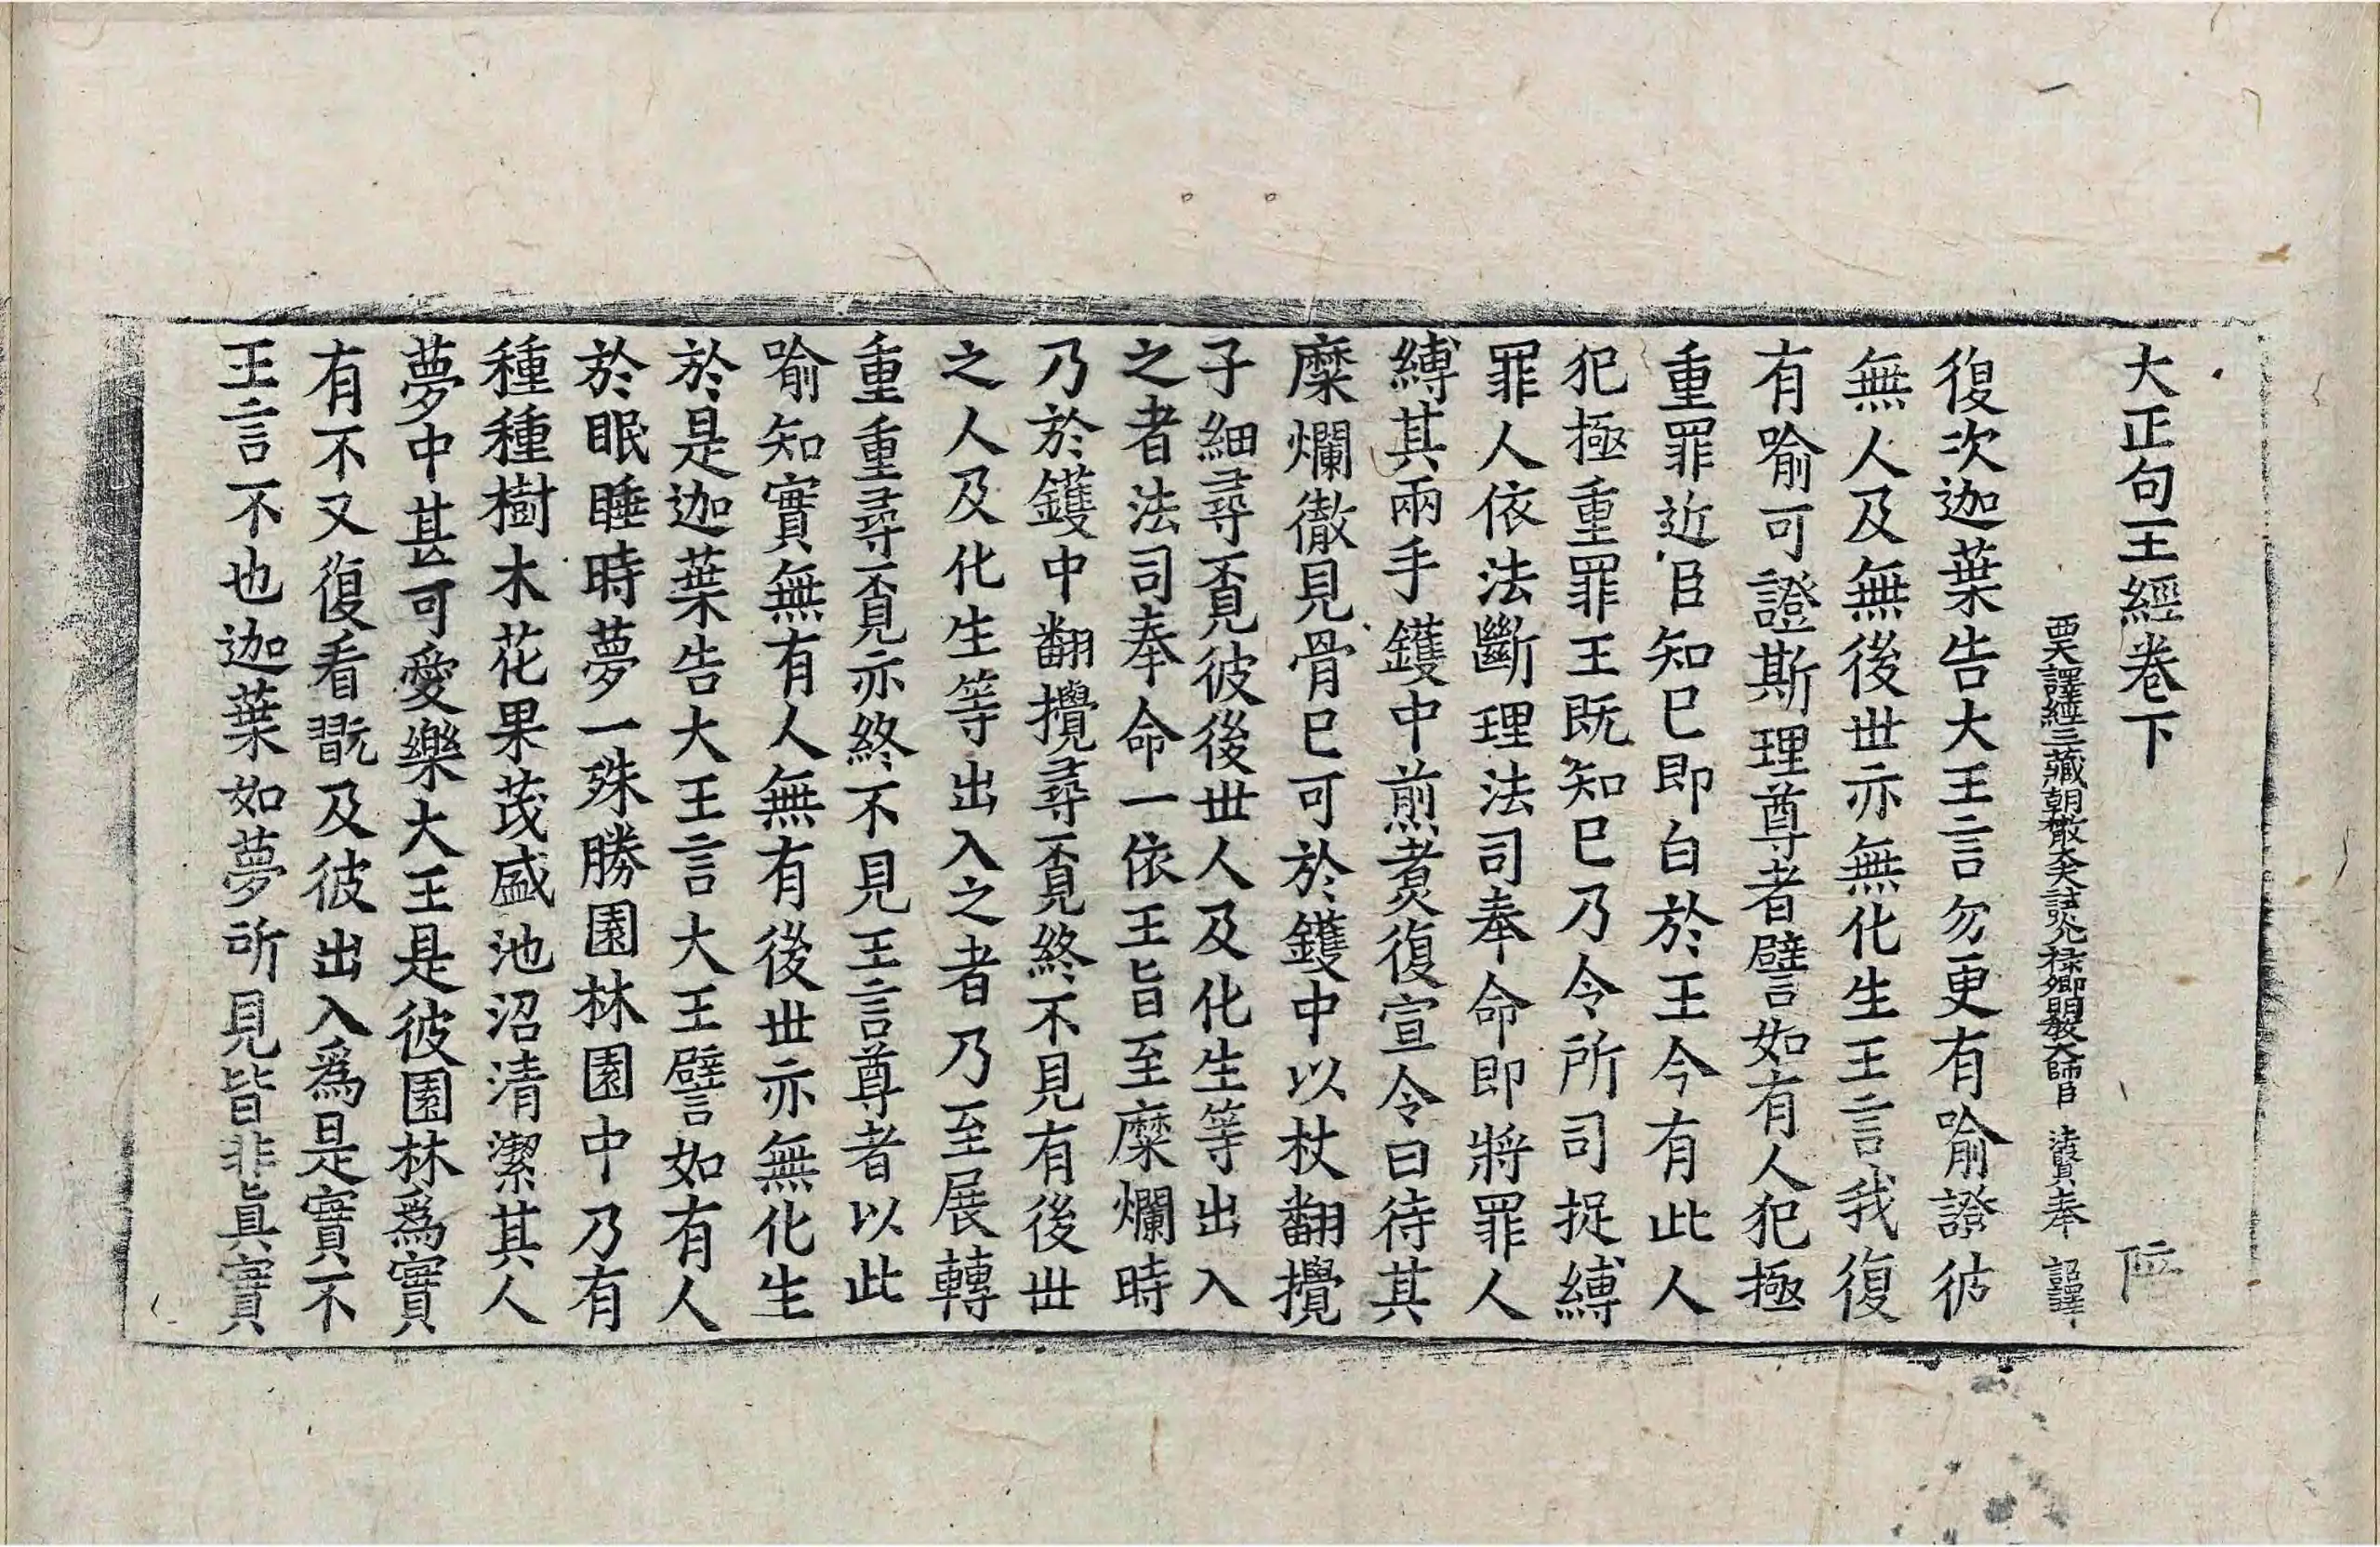 大正句王經卷下 位
西天譯經三藏朝散大夫試光祿卿明教大師臣 法賢 奉 詔譯
復次迦葉告大王言勿更有喻證彼
無人及無後世亦無化生王言我復
有喻可證斯理尊者譬如有人犯極
重罪近臣知已即白於王今有此人
犯極重罪王既知已乃令所司捉縛
罪人依法斷理法司奉命即將罪人
縛其兩手鑊中煎煑復宣令曰待其
糜爛徹見骨已可於鑊中以杖翻攪
子細尋覔彼後世人及化生等出入
之者法司奉命一依王旨至糜爛時
乃於鑊中翻攪尋覔終不見有後世
之人及化生等出入之者乃至展轉
重重尋覔亦終不見王言尊者以此
喻知實無有人無有後世亦無化生
於是迦葉告大王言大王譬如有人
於眠睡時夢一殊勝園林園中乃有
種種樹木花果茂盛池沼清潔其人
夢中甚可愛樂大王是彼園林爲實
有不又復看翫及彼出入爲是實不
王言不也迦葉如夢所見皆非眞實